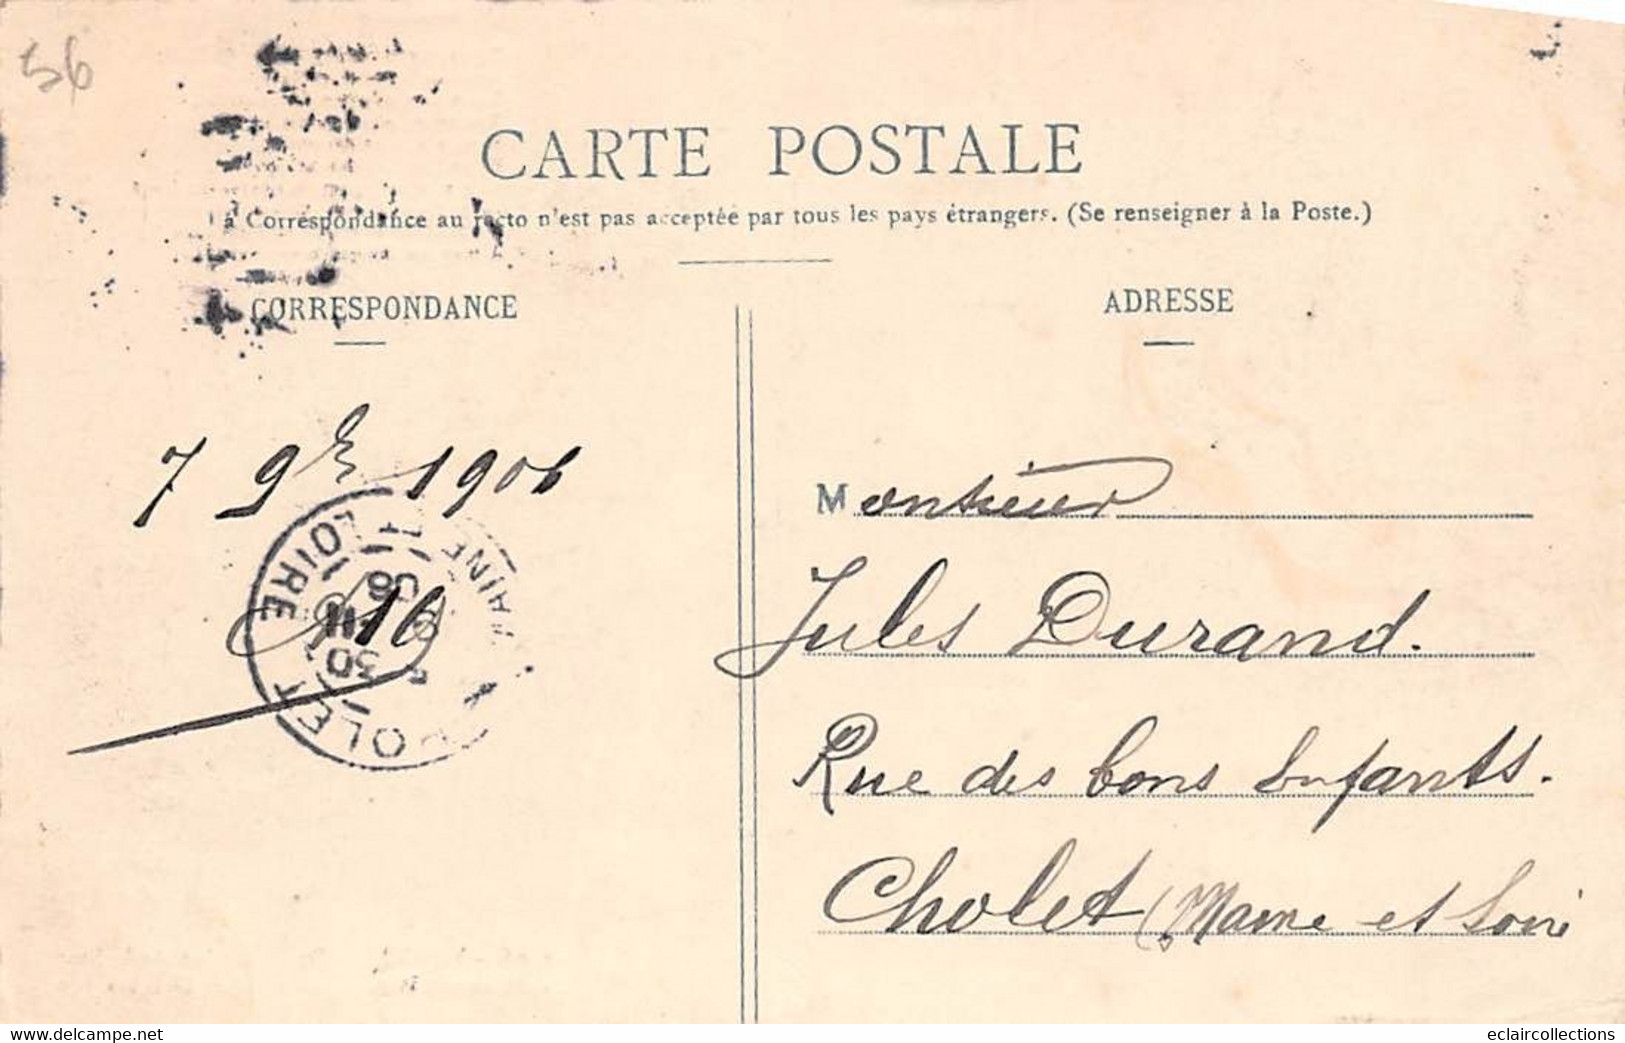 56
CARTE POSTALE
La Correspondance au recto n'est pas acceptée par tous les pays étrangers. (Se renseigner à la Poste.)
CORRESPONDANCE
ADRESSE
7 9bre 1906
Monsieur
Jules Durand.
Rue des bons Enfants.
Cholet (Maine et Loire
CHOLET MAINE ET LOIRE
www.delcampe.net
eclaircollections